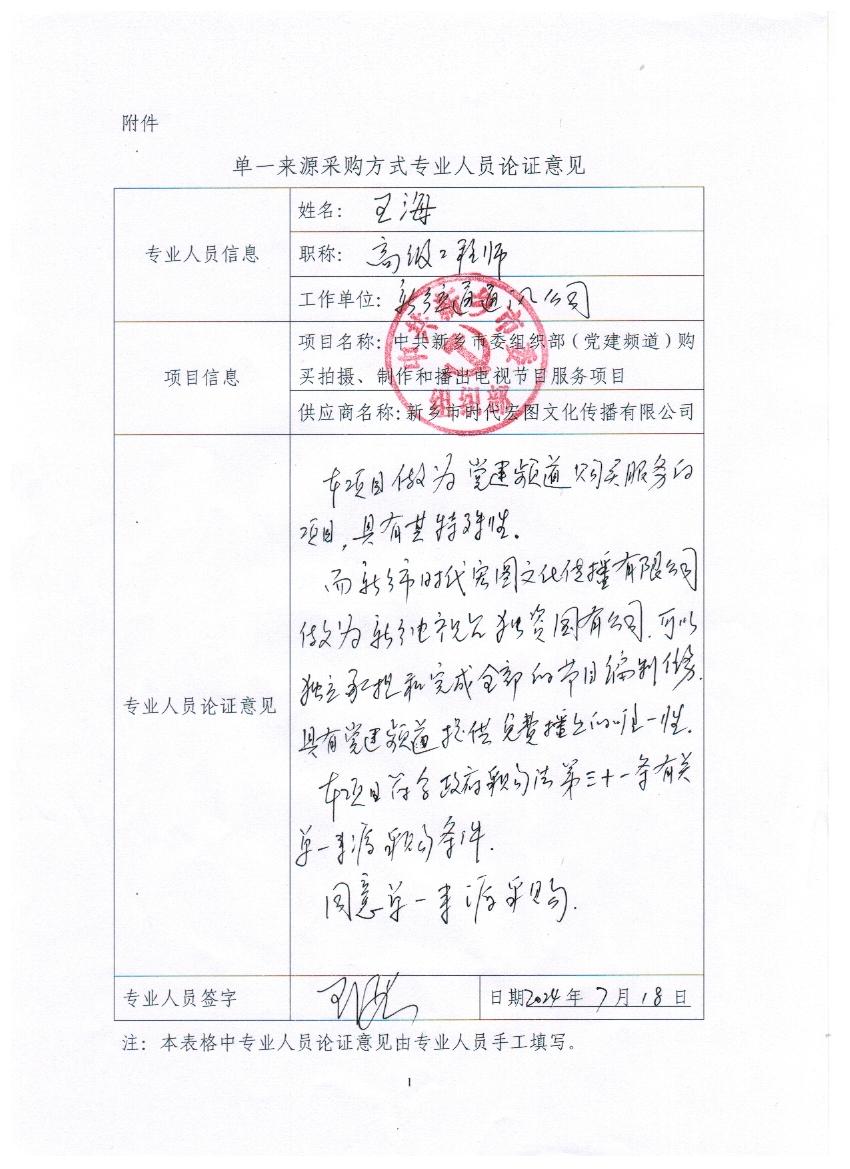 附件
单一来源采购方式专业人员论证意见
专业人员信息
姓名：王海
职称：高级工程师
工作单位：新乡通通讯公司
中共新乡市委
组织部
项目信息
项目名称：中共新乡市委组织部（党建频道）购
买拍摄、制作和播出电视节目服务项目
供应商名称：新乡市时代宏图文化传播有限公司
专业人员论证意见
本项目做为党建频道购买服务的
项目，具有其特殊性。
而新乡市时代宏图文化传播有限公司
做为新乡电视台独资国有公司，可以
独立承担和完成全部的节目编制任务。
具有党建频道提供免费播出的唯一性。
本项目符合政府采购法第三十一条有关
单一来源采购条件。
同意单一来源采购。
专业人员签字
王海
日期2024年7月18日
注：本表格中专业人员论证意见由专业人员手工填写。
1